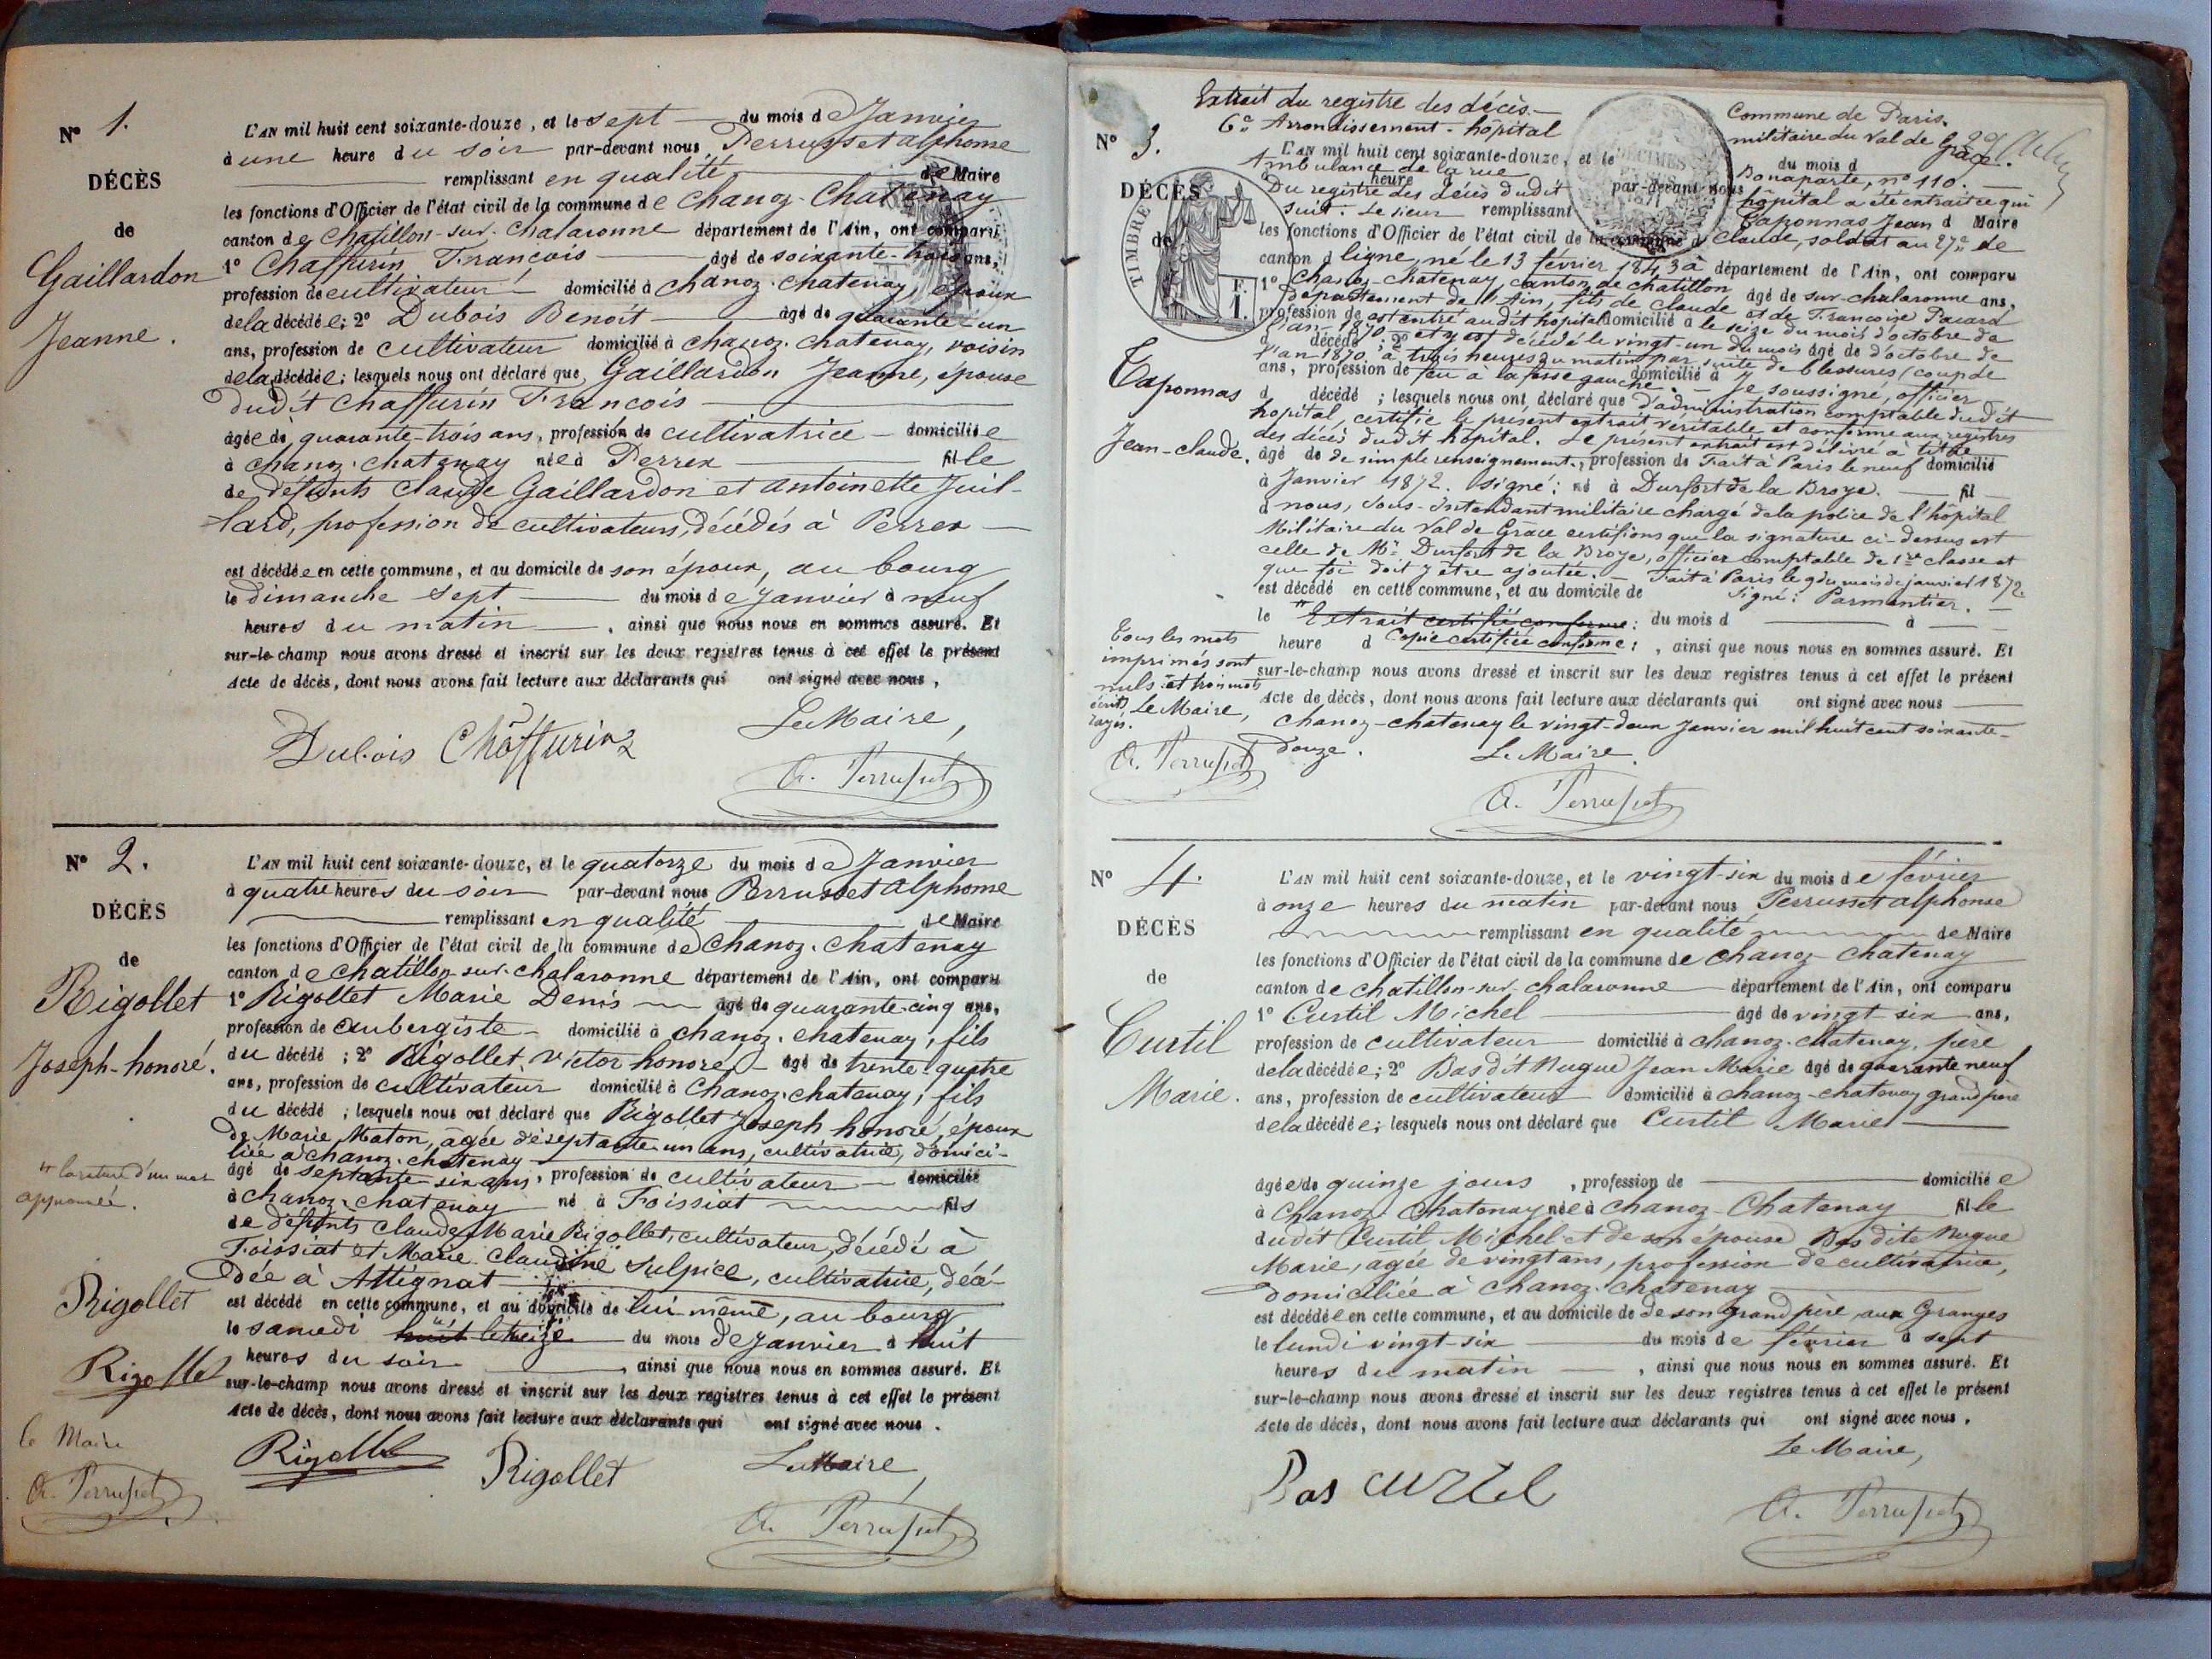 N° 1.
DÉCÈS
de
Gaillardon
Jeanne.
L'AN mil huit cent soixante-douze, et le sept du mois de Janvier
à une heure du soir par-devant nous Perrusset alphonse
remplissant en qualité de Maire
les fonctions d'Officier de l'état civil de la commune de Chanoz-Chatenay
canton de Chatillon-sur-Chalaronne département de l'Ain, ont comparu
1° Chaffurin François âgé de soixante-trois ans,
profession de cultivateur domicilié à Chanoz-Chatenay, époux
de la décédée; 2° Dubois Benoît âgé de quarante-un
ans, profession de cultivateur domicilié à Chanoz-Chatenay, voisin
de la décédée; lesquels nous ont déclaré que Gaillardon Jeanne, épouse
dudit Chaffurin François
âgée de quarante-trois ans, profession de cultivatrice domiciliée
à Chanoz-Chatenay née à Perrex fille
de défunts Claude Gaillardon et Antoinette Juil-
lard, profession de cultivateurs, décédés à Perrex
est décédée en cette commune, et au domicile de son époux, au bourg
le dimanche sept du mois de Janvier à neuf
heures du matin, ainsi que nous nous en sommes assuré. Et
sur-le-champ nous avons dressé et inscrit sur les deux registres tenus à cet effet le présent
Acte de décès, dont nous avons fait lecture aux déclarants qui ont signé avec nous,
Dubois Chaffurin Le Maire,
A. Perrusset
N° 2.
DÉCÈS
de
Rigollet
Joseph-honoré.
L'AN mil huit cent soixante-douze, et le quatorze du mois de Janvier
à quatre heures du soir par-devant nous Perrusset alphonse
remplissant en qualité de Maire
les fonctions d'Officier de l'état civil de la commune de Chanoz-Chatenay
canton de Chatillon-sur-Chalaronne département de l'Ain, ont comparu
1° Rigollet Marie Denis âgé de quarante-cinq ans,
profession de aubergiste domicilié à Chanoz-Chatenay, fils
du décédé; 2° Rigollet Victor honoré âgé de trente-quatre
ans, profession de cultivateur domicilié à Chanoz-Chatenay, fils
du décédé; lesquels nous ont déclaré que Rigollet Joseph honoré, époux
de Marie Maton, âgée de septante-un ans, cultivatrice, domici-
liée à Chanoz-Chatenay
âgé de septante-six ans, profession de cultivateur domicilié
à Chanoz-Chatenay né à Foissiat fils
de défunts Claude Marie Rigollet, cultivateur, décédé à
Foissiat et Marie Claudine Sulpice, cultivatrice, décé-
dée à Attignat
est décédé en cette commune, et au domicile de lui-même, au bourg
le samedi huit le treize du mois de Janvier à huit
heures du soir, ainsi que nous nous en sommes assuré. Et
sur-le-champ nous avons dressé et inscrit sur les deux registres tenus à cet effet le présent
Acte de décès, dont nous avons fait lecture aux déclarants qui ont signé avec nous.
la rature d'un mot
approuvée.
Rigollet
Rigollet
le Maire
A. Perrusset
Rigollet Rigollet Le Maire,
A. Perrusset
N° 3.
DÉCÈS
de
Taponnas
Jean-Claude.
TIMBRE
F.
1.
Extrait du registre des décès. Commune de Paris.
6e Arrondissement - hôpital militaire du Val de Grâce.
L'AN mil huit cent soixante-douze, et le du mois d
Ambulance de la rue Bonaparte, n° 110.
heure par-devant nous
Du registre des décès dudit hôpital a été extrait ce qui
suit. Le sieur remplissant Taponnas Jean d Maire
les fonctions d'Officier de l'état civil de la commune d Claude, soldat au 27e de
canton d ligne, né le 13 février 1843 à département de l'Ain, ont comparu
1° Chanoz-Chatenay, canton de Chatillon âgé de sur-chalaronne ans,
Département de l'Ain, fils de Claude et de Françoise Pacard
profession de est entré audit hôpital domicilié à le seize du mois d'octobre de
l'an 1870 et y est décédé le vingt-un du mois d'octobre de
d décédé; 2° âgé de
l'an 1870 à trois heures du matin par suite de blessures (coup de
ans, profession de feu à la fesse gauche domicilié à Je soussigné, officier
d décédé; lesquels nous ont déclaré que d'administration comptable dudit
hôpital, certifie le présent extrait véritable et conforme aux registres
des décès dudit hôpital. Le présent extrait est délivré à titre
âgé de de simple renseignement., profession de Fait à Paris le neuf domicilié
à Janvier 1872. Signé: né à Durfort de la Broye. fil
d nous, Sous-Intendant militaire chargé de la police de l'hôpital
Militaire du Val de Grâce certifions que la signature ci-dessus est
celle de Mr Durfort de la Broye, officier comptable de 1re classe et
que foi doit y être ajoutée. Fait à Paris le 9 du mois de janvier 1872.
est décédé en cette commune, et au domicile de Signé: Parmentier.
le Extrait certifié conforme: du mois d à
heure d Copie certifiée conforme:, ainsi que nous nous en sommes assuré. Et
sur-le-champ nous avons dressé et inscrit sur les deux registres tenus à cet effet le présent
Acte de décès, dont nous avons fait lecture aux déclarants qui ont signé avec nous
Chanoz-Chatenay le vingt-deux Janvier mil huit cent soixante-
douze. Le Maire.
A. Perrusset
Tous les mots
imprimés sont
nuls et trois mots
écrits
rayés.
Le Maire,
A. Perrusset
N° 4.
DÉCÈS
de
Curtil
Marie.
L'AN mil huit cent soixante-douze, et le vingt-six du mois de février
à onze heures du matin par-devant nous Perrusset alphonse
remplissant en qualité de Maire
les fonctions d'Officier de l'état civil de la commune de Chanoz-Chatenay
canton de Chatillon-sur-Chalaronne département de l'Ain, ont comparu
1° Curtil Michel âgé de vingt six ans,
profession de cultivateur domicilié à Chanoz-Chatenay, père
de la décédée; 2° Bas dit Nugue Jean Marie âgé de quarante neuf
ans, profession de cultivateur domicilié à Chanoz-Chatenay grand père
de la décédée; lesquels nous ont déclaré que Curtil Marie
âgée de quinze jours, profession de domiciliée
à Chanoz-Chatenay née à Chanoz-Chatenay fille
dudit Curtil Michel et de son épouse Bas dite Nugue
Marie, âgée de vingt ans, profession de cultivatrice,
domiciliée à Chanoz-Chatenay
est décédée en cette commune, et au domicile de de son grand père aux Granges
le lundi vingt-six du mois de février à sept
heures du matin, ainsi que nous nous en sommes assuré. Et
sur-le-champ nous avons dressé et inscrit sur les deux registres tenus à cet effet le présent
Acte de décès, dont nous avons fait lecture aux déclarants qui ont signé avec nous.
Le Maire,
Bas curtel
A. Perrusset